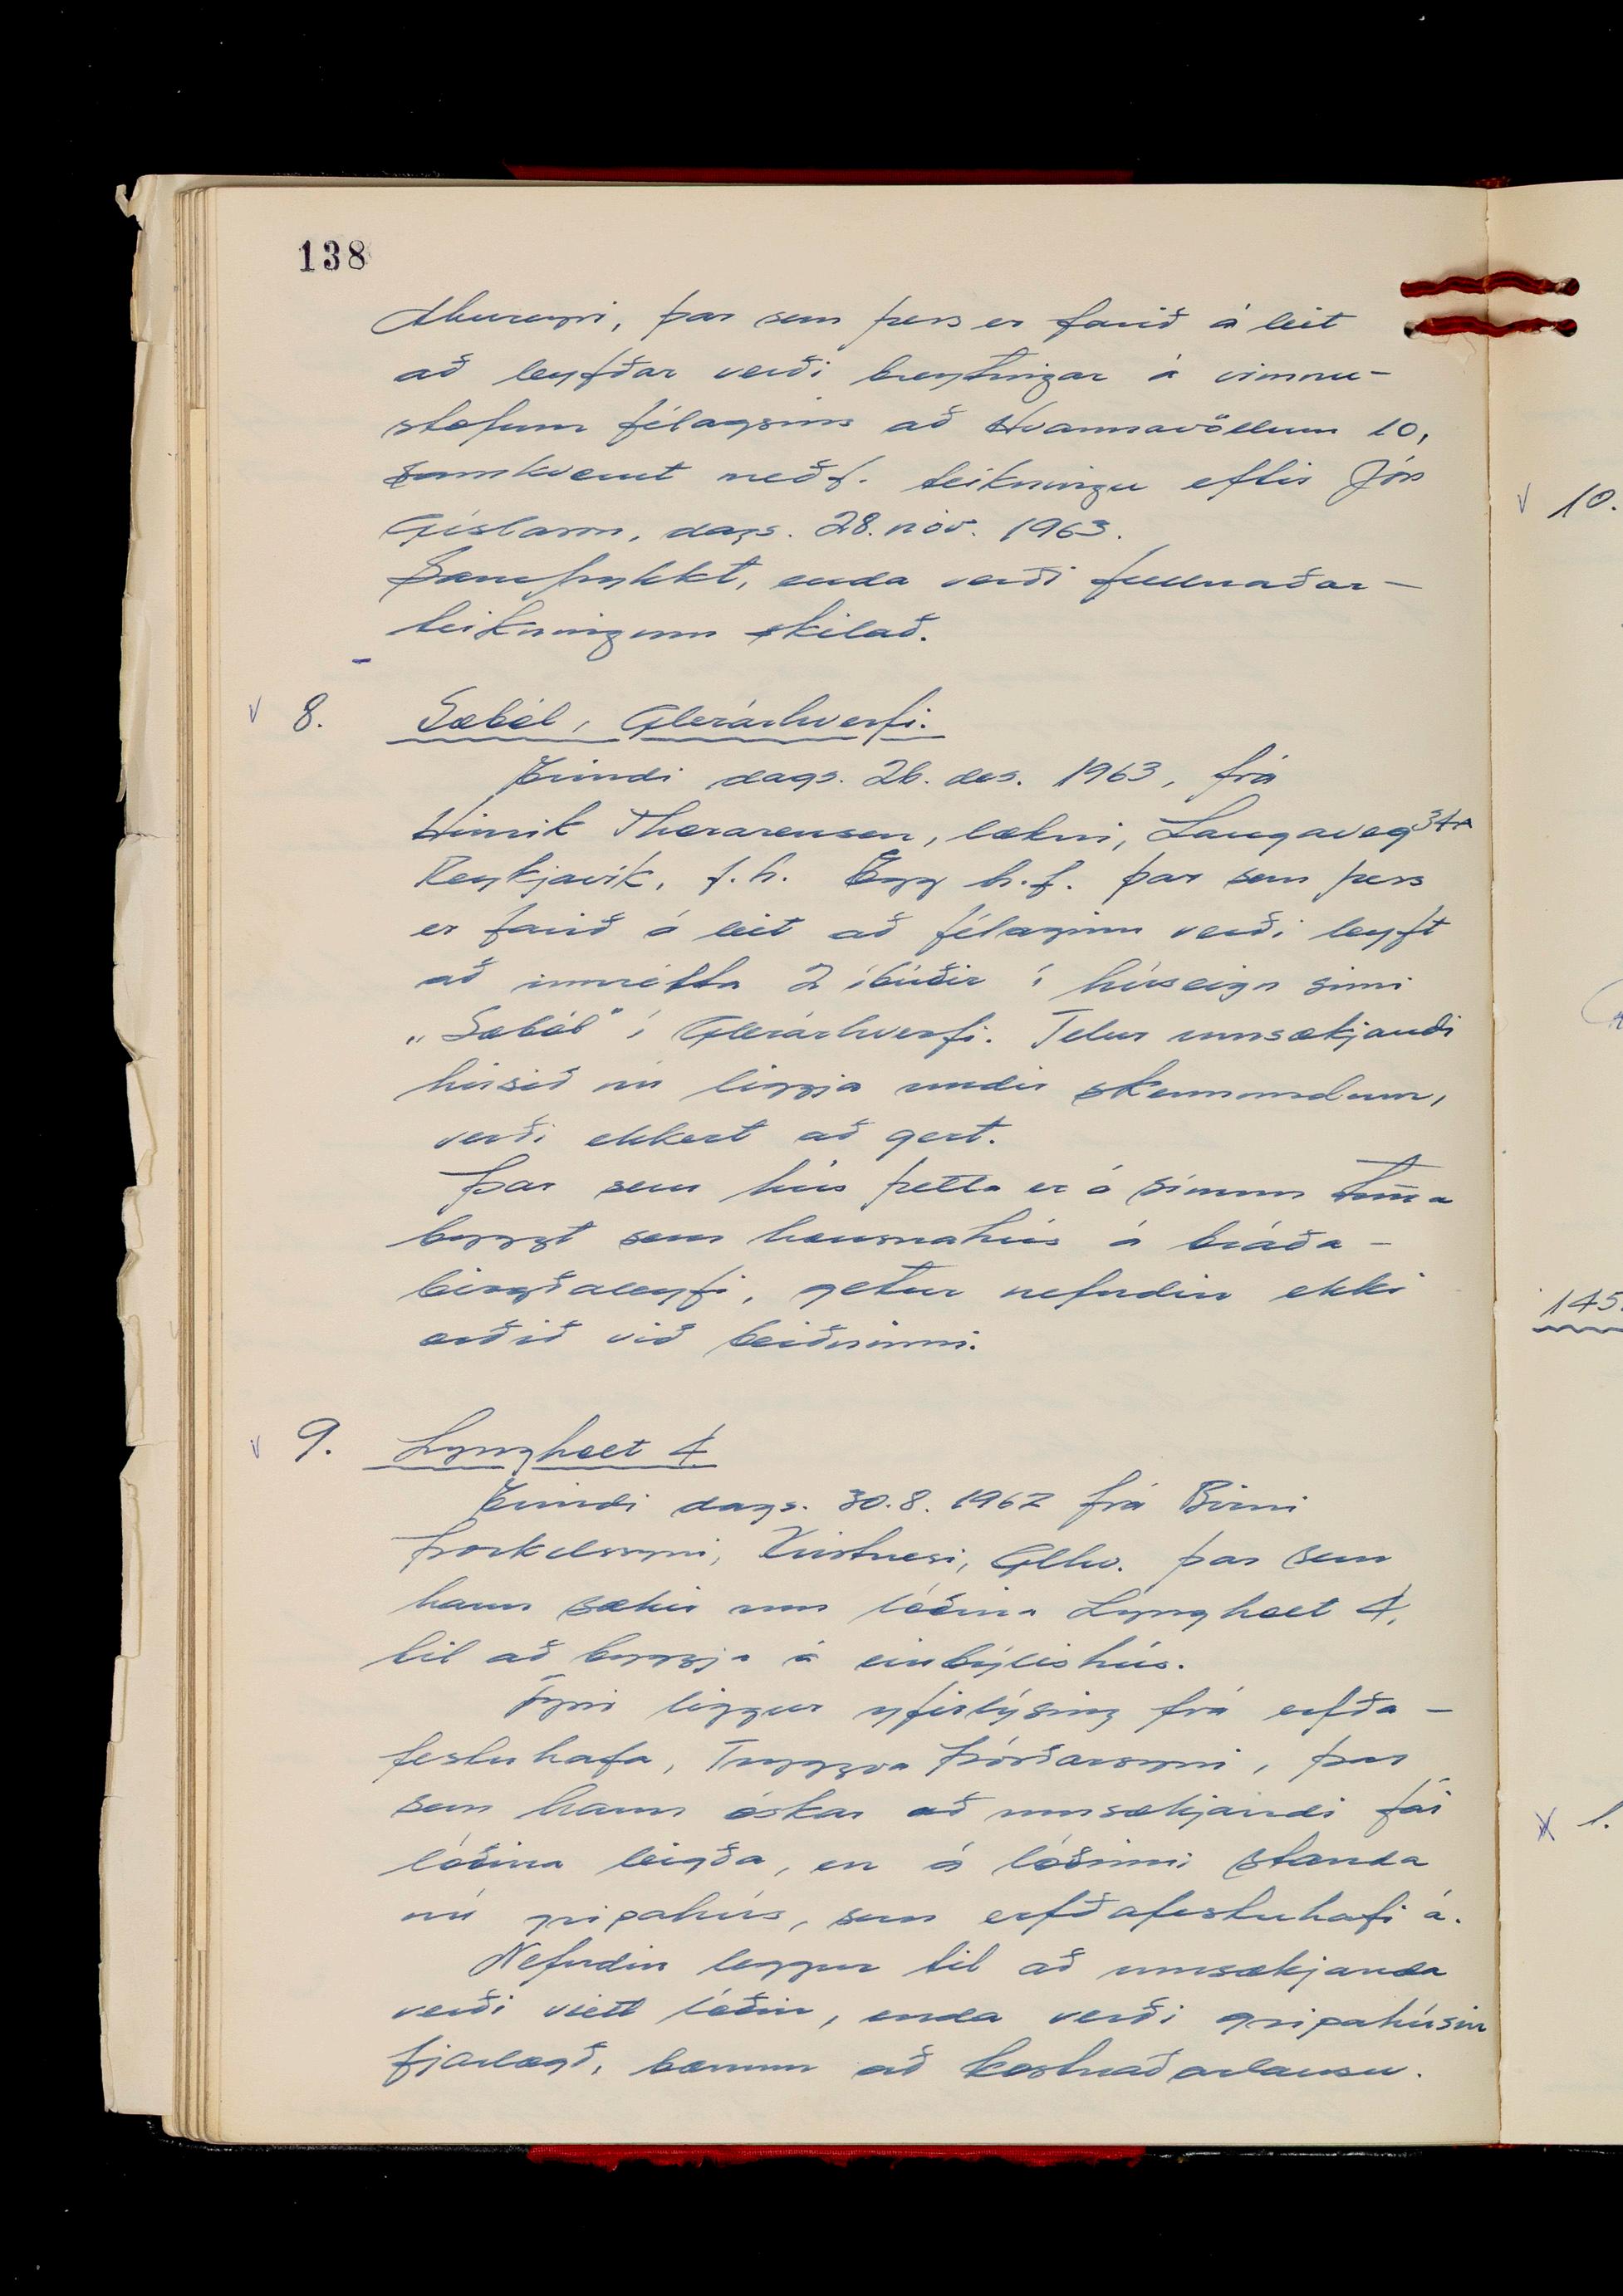 138
Akureyri, þar sem þess er farið á leit
að leyfðar verði breytingar á vinnu-
stofum félagsins að Hvannavöllum 10,
samkvæmt meðf. teikningu eftir Jón
Gíslason, dags. 28. nóv. 1963.
Samþykkt, enda verði fullnaðar-
teikningum skilað.
8. Sæból, Glerárhverfi.
Erindi dags. 26. des. 1963, frá
Hinrik Thorarensen, lækni, Laugaveg 34A
Reykjavík, f.h. Egg h.f. þar sem þess
er farið á leit að félaginu verði leyft
að innrétta 2 íbúðir í húseign sinni
„Sæból" í Glerárhverfi. Telur umsækjandi
húsið nú liggja undir skemmdum,
verði ekkert að gert.
Þar sem hús þetta er á sínum tíma
byggt sem hænsnahús á bráða-
birgðaleyfi, getur nefndin ekki
orðið við beiðninni.
9. Lyngholt 4
Erindi dags. 30.8. 1962 frá Birni
Þorkelssyni, Kristnesi, Glhv. þar sem
hann sækir um lóðina Lyngholt 4,
til að byggja á einbýlishús.
Fyrir liggur yfirlýsing frá erfða-
festuhafa, Tryggva Þórðarsyni, þar
sem hann óskar að umsækjandi fái
lóðina leigða, en á lóðinni standa
nú gripahús, sem erfðafestuhafi á.
Nefndin leggur til að umsækjanda
verði veitt lóðin, enda verði gripahúsin
fjarlægð, bænum að kostnaðarlausu.
10.
145.
1.